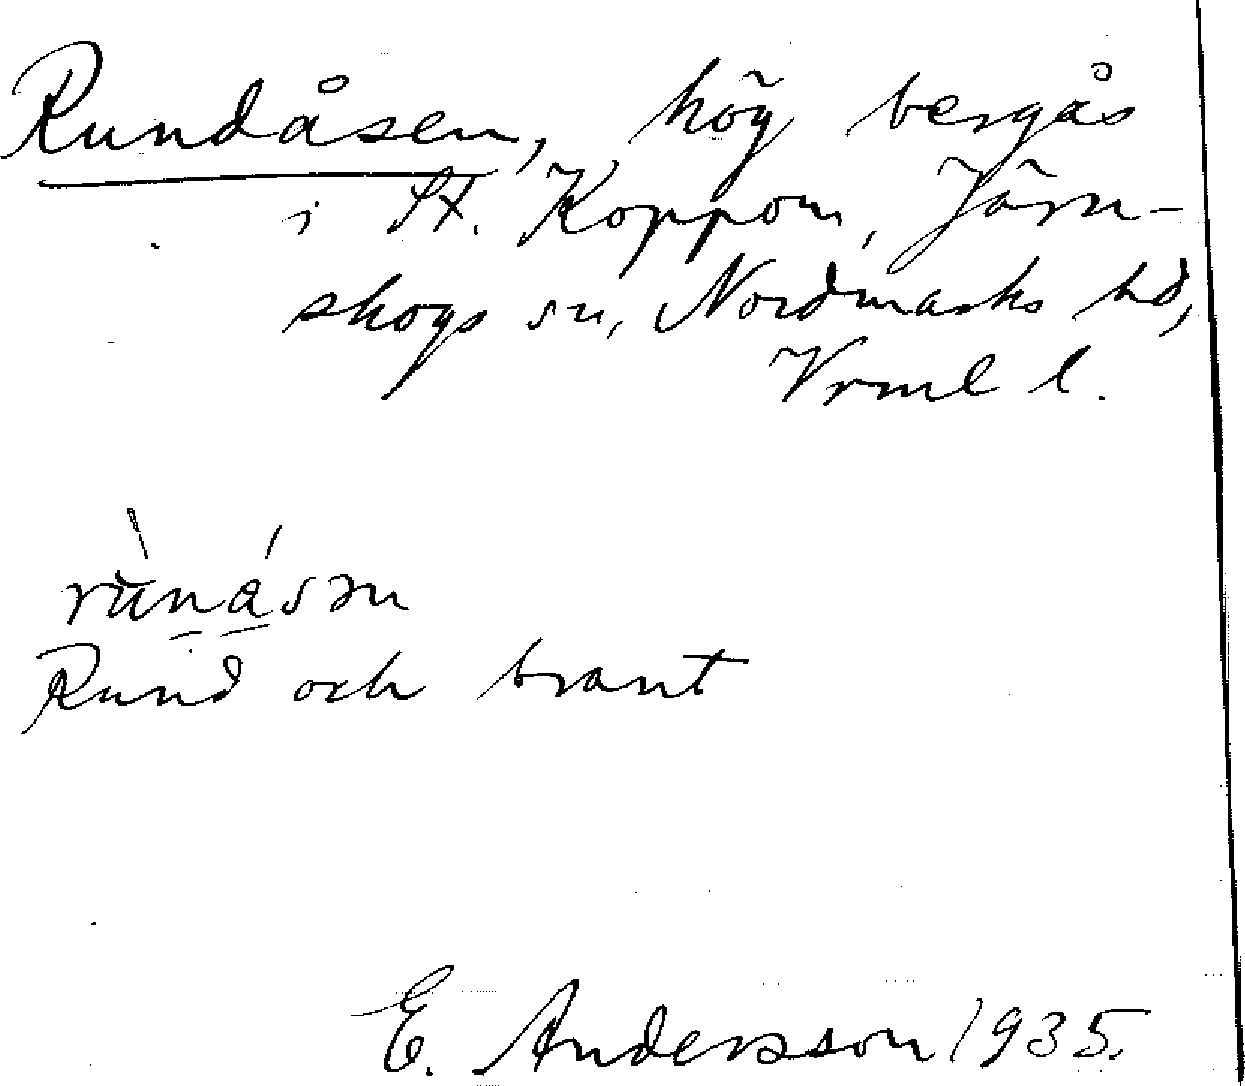 Rundåsen, hög bergås
i St. Koppom, Järn-
skogs sn, Nordmarks hd,
Vrml l.
rùnásən
Rund och brant
E. Andersson 1935.